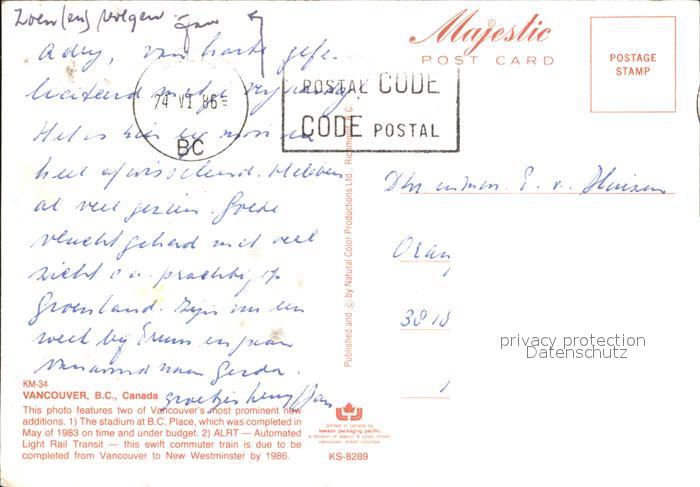 Zoen(en) volgen Jan
Adry, van harte gefe-
liciteerd met je verjaardag!
Het is hier erg mooi en
heel afwisselend. Hebben
al veel gezien. Goede
vlucht gehad met veel
zicht o.a. prachtig op
Groenland. Zijn nu een
week bij Truus en gaan
vanavond naar Gerda.
groetjes Jan
14 VI 86
BC
POSTAL CODE
CODE POSTAL
Majestic
POST CARD
POSTAGE
STAMP
E. v. Huizen
Oran
3818
1
privacy protection
Datenschutz
Published and © by Natural Color Productions Ltd., Richmond, B.C.
KM-34
VANCOUVER, B.C., Canada
This photo features two of Vancouver's most prominent new
additions. 1) The stadium at B.C. Place, which was completed in
May of 1983 on time and under budget. 2) ALRT — Automated
Light Rail Transit — this swift commuter train is due to be
completed from Vancouver to New Westminster by 1986.
printed in canada by
lawson packaging pacific
a division of lawson & jones limited
vancouver, british columbia
KS-8289